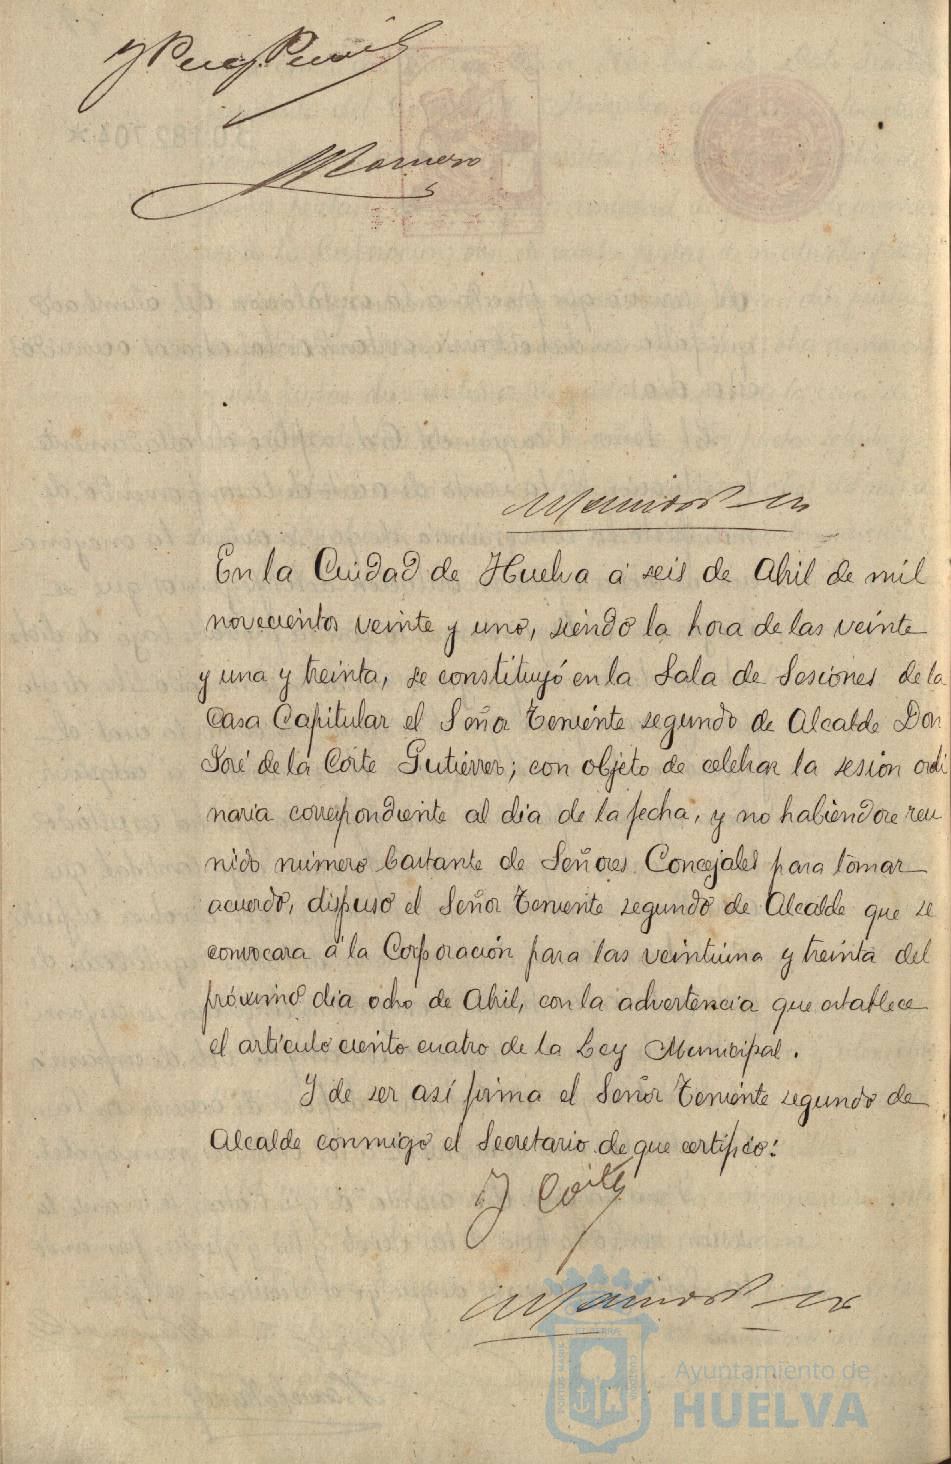 En la Ciudad de Huelva á seis de Abril de mil
novecientos veinte y uno, siendo la hora de las veinte
y una y treinta, se constituyó en la Sala de Sesiones de la
Casa Capitular el Señor Teniente segundo de Alcalde Don
José de la Corte Gutiérrez; con objeto de celebrar la sesión ordi
naria correspondiente al día de la fecha, y no habiéndose reu
nido número bastante de Señores Concejales para tomar
acuerdo, dispuso el Señor Teniente segundo de Alcalde que se
convocara á la Corporación para las veintiuna y treinta del
próximo día ocho de Abril, con la advertencia que establece
el artículo ciento cuatro de la Ley Municipal.
Y de ser así firma el Señor Teniente segundo de
Alcalde conmigo el Secretario de que certifico:
J Corte
Ayuntamiento de
HUELVA